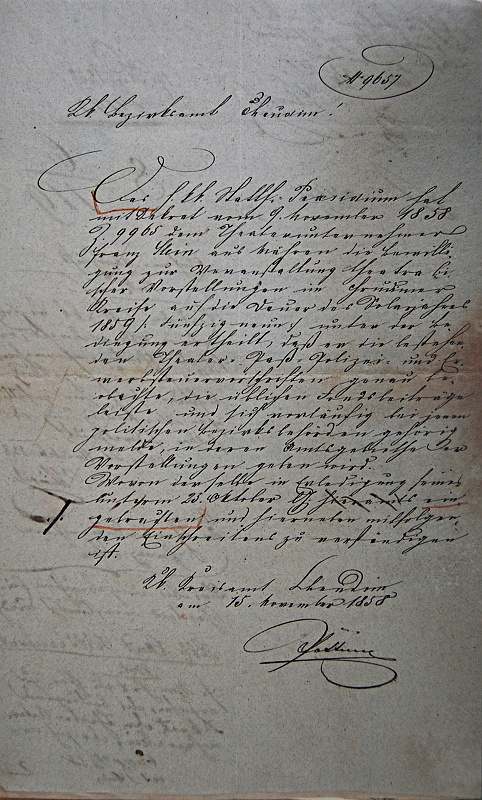 N 9657
K.k. Bezirksamt Chrudim!
Das h. k.k. Statth. Praesidium hat
mit Dekret vom 9. November 1858
Z 9965 dem Theaterunternehmer
Franz Stein aus Mähren die Bewilli-
gung zur Veranstaltung theatrali-
scher Vorstellungen im Chrudimer
Kreise auf die Dauer des Solarjahres
1859 /: fünfzig neun :/ unter der Be-
dingung ertheilt, daß er die bestehen-
den Theater- Paß- Polizei- und Er-
werbsteuervorschriften genau be-
obachte, die üblichen Fondsbeiträge
leiste, und sich vorläufig bei jenen
politischen Bezirksbehörden gehörig
melde, in deren Amtsgebiethe der
Vorstellungen geben wird.
Wovon derselbe in Erledigung seines
unterm 25. Oktober ein
gebrachten und hierneben mitfolgen-
den Einschreitens zu verständigen
ist.
K.k. Kreisamt Chrudim
am 15. November 1858